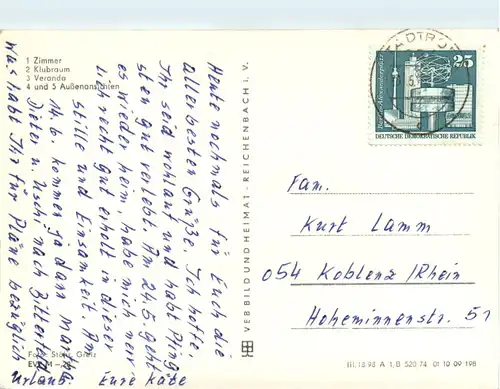 1 Zimmer
2 Klubraum
3 Veranda
4 und 5 Außenansichten
Heute nochmals für Euch die
allerbesten Grüße. Ich hoffe,
Ihr seid wohlauf und habt Pfing-
sten gut verlebt. Am 24.5. geht
es wieder heim, habe mich wirk-
lich recht gut erholt in dieser
Stille und Einsamkeit. Am
14.6. kommen ja dann
Dieter u. Uschi nach
Was habt Ihr für Pläne bezüglich
Urlaub Eure Käte
Foto: Greiz
VEB BILD UND HEIMAT · REICHENBACH i. V.
25
Berlin-Alexanderplatz
DEUTSCHE DEMOKRATISCHE REPUBLIK
Fam.
Kurt Lamm
054 Koblenz/Rhein
Hoheminnenstr. 51
III.18.93 A 1,B 520 74 01 10 09 198